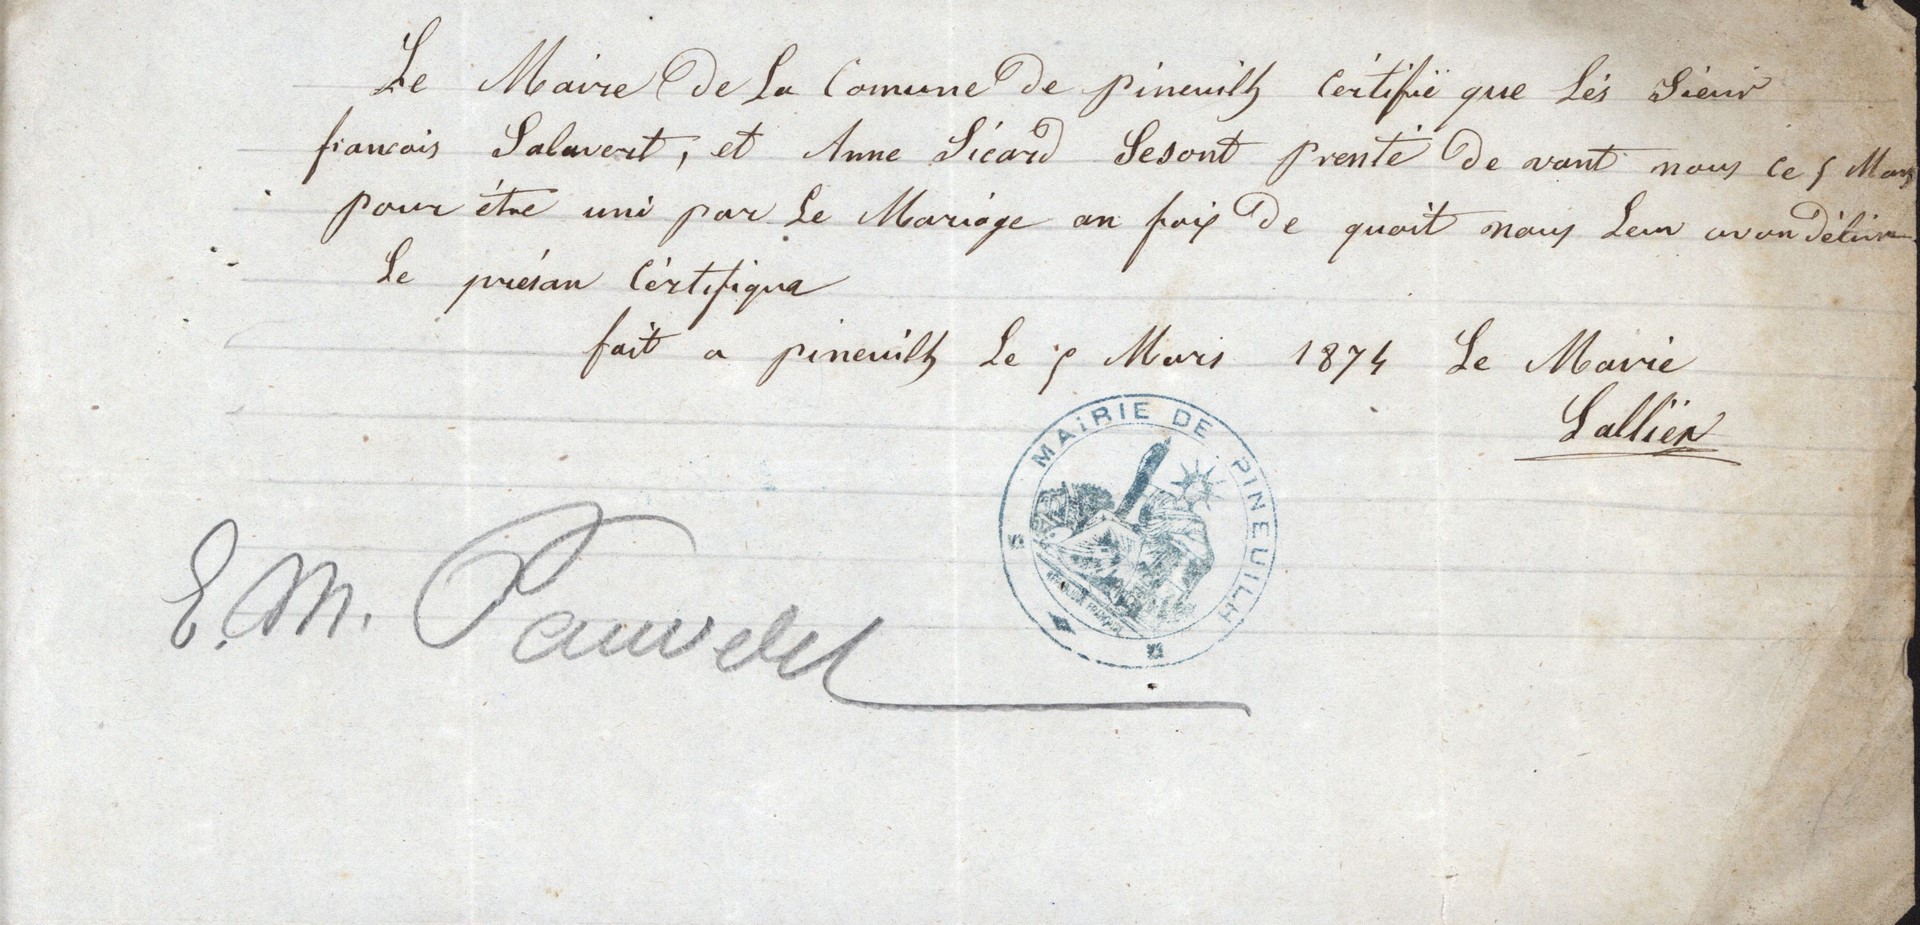 Le Maire de La Comune de pineuilh Cértifië que Lés Sieur
francois Salavert, et Anne Sicard Sesont prenté de vant nous Ce 5 Mars
pour étre uni par Le Mariage an foix de quoit nous Leur avon délivre
Le présan Cértifiqua
fait a pineuilh Le 5 Mars 1874 Le Marie
Lallier
MAIRIE DE PINEUILH
E. M.